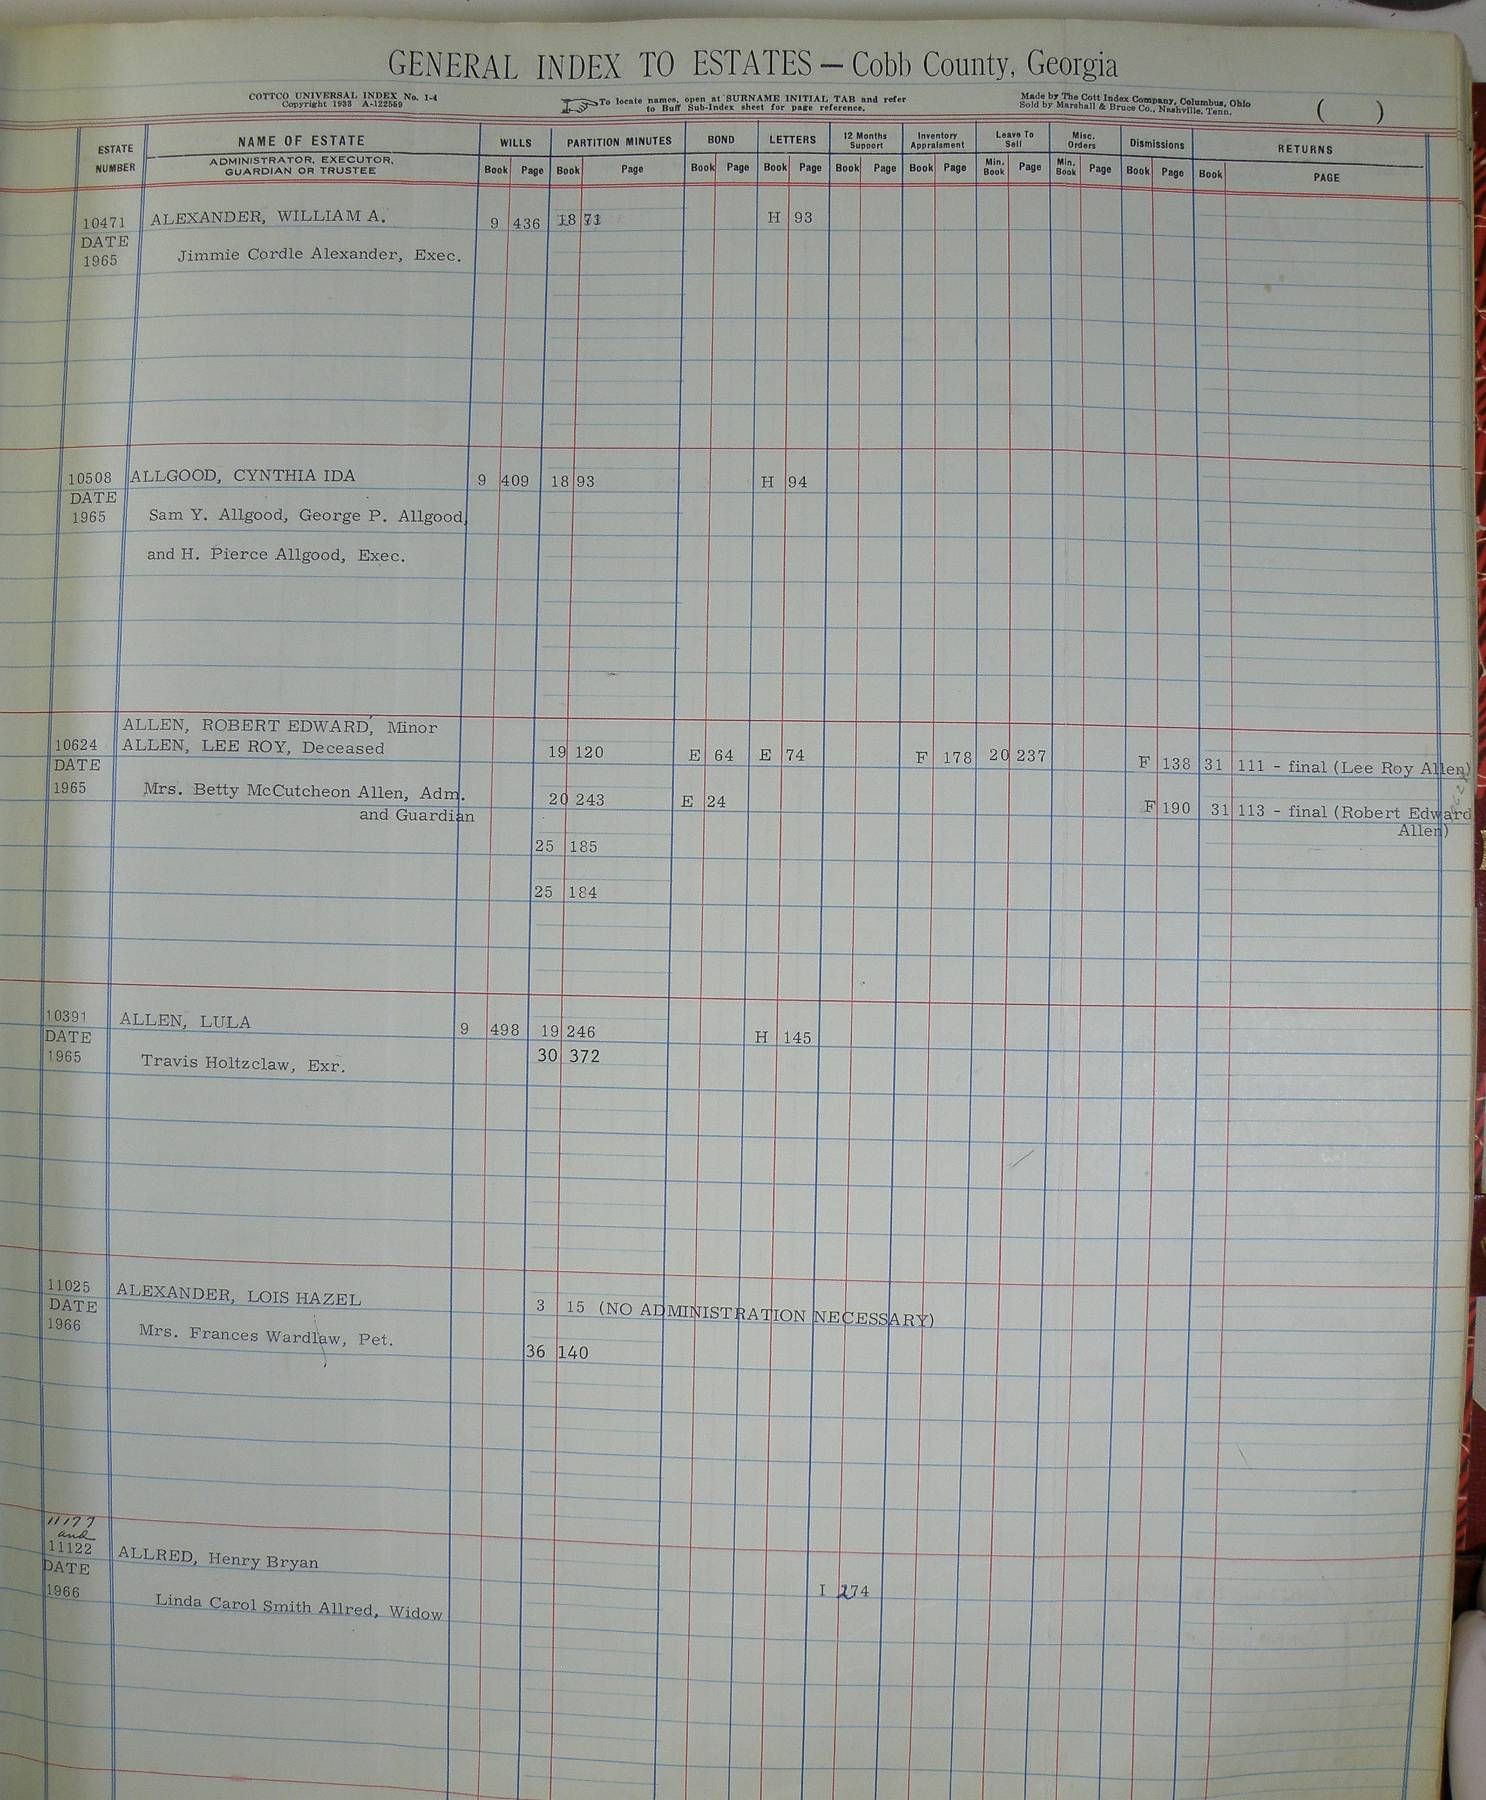 GENERAL INDEX TO ESTATES — Cobb County, Georgia
COTTCO UNIVERSAL INDEX No. 1-4
Copyright 1933 A-122559
To locate names, open at SURNAME INITIAL TAB and refer
to Buff Sub-Index sheet for page reference.
Made by The Cott Index Company, Columbus, Ohio
Sold by Marshall & Bruce Co., Nashville, Tenn.
( )
ESTATE NUMBER
NAME OF ESTATE
ADMINISTRATOR, EXECUTOR, GUARDIAN OR TRUSTEE
WILLS Book Page
PARTITION MINUTES Book Page
BOND Book Page
LETTERS Book Page
12 Months Support Book Page
Inventory Appraisment Book Page
Leave To Sell Min. Book Page
Misc. Orders Min. Book Page
Dismissions Book Page
RETURNS Book PAGE
10471 ALEXANDER, WILLIAM A. 9 436 18 71 H 93
DATE
1965 Jimmie Cordle Alexander, Exec.
10508 ALLGOOD, CYNTHIA IDA 9 409 18 93 H 94
DATE
1965 Sam Y. Allgood, George P. Allgood,
and H. Pierce Allgood, Exec.
ALLEN, ROBERT EDWARD, Minor
10624 ALLEN, LEE ROY, Deceased 19 120 E 64 E 74 F 178 20 237 F 138 31 111 - final (Lee Roy Allen)
DATE
1965 Mrs. Betty McCutcheon Allen, Adm. 20 243 E 24 F 190 31 113 - final (Robert Edward
and Guardian Allen)
25 185
25 184
10391 ALLEN, LULA 9 498 19 246 H 145
DATE
1965 Travis Holtzclaw, Exr. 30 372
11025 ALEXANDER, LOIS HAZEL 3 15 (NO ADMINISTRATION NECESSARY)
DATE
1966 Mrs. Frances Wardlaw, Pet. 36 140
11177
and
11122 ALLRED, Henry Bryan
DATE
1966 Linda Carol Smith Allred, Widow I 274